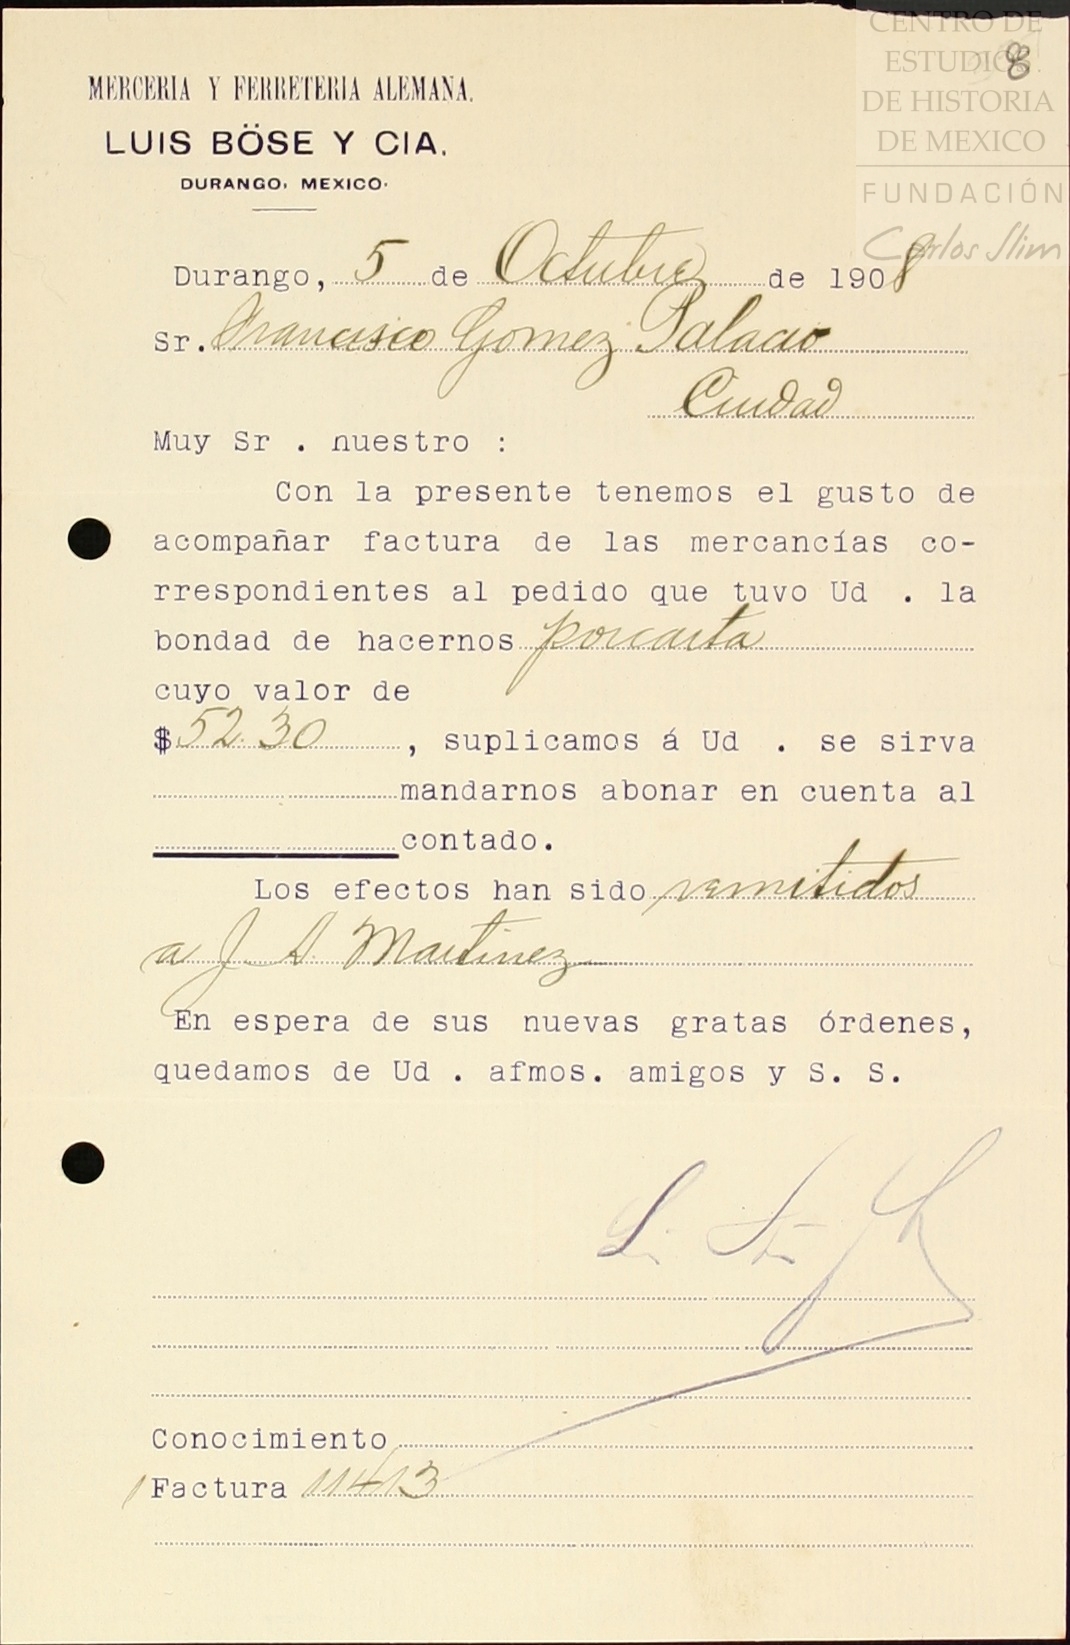 CENTRO DE
ESTUDIOS
DE HISTORIA
DE MEXICO
FUNDACIÓN
Carlos Slim
8
MERCERIA Y FERRETERIA ALEMANA.
LUIS BÖSE Y CIA.
DURANGO, MEXICO.
Durango, 5 de Octubre de 1908
Sr. Francisco Gomez Palacio
Ciudad
Muy Sr . nuestro :
Con la presente tenemos el gusto de
acompañar factura de las mercancías co-
rrespondientes al pedido que tuvo Ud . la
bondad de hacernos por carta
cuyo valor de
$ 52.30 , suplicamos á Ud . se sirva
mandarnos abonar en cuenta al
contado.
Los efectos han sido remitidos
a J. A. Martinez
En espera de sus nuevas gratas órdenes,
quedamos de Ud . afmos. amigos y S. S.
Conocimiento
1 Factura 11413